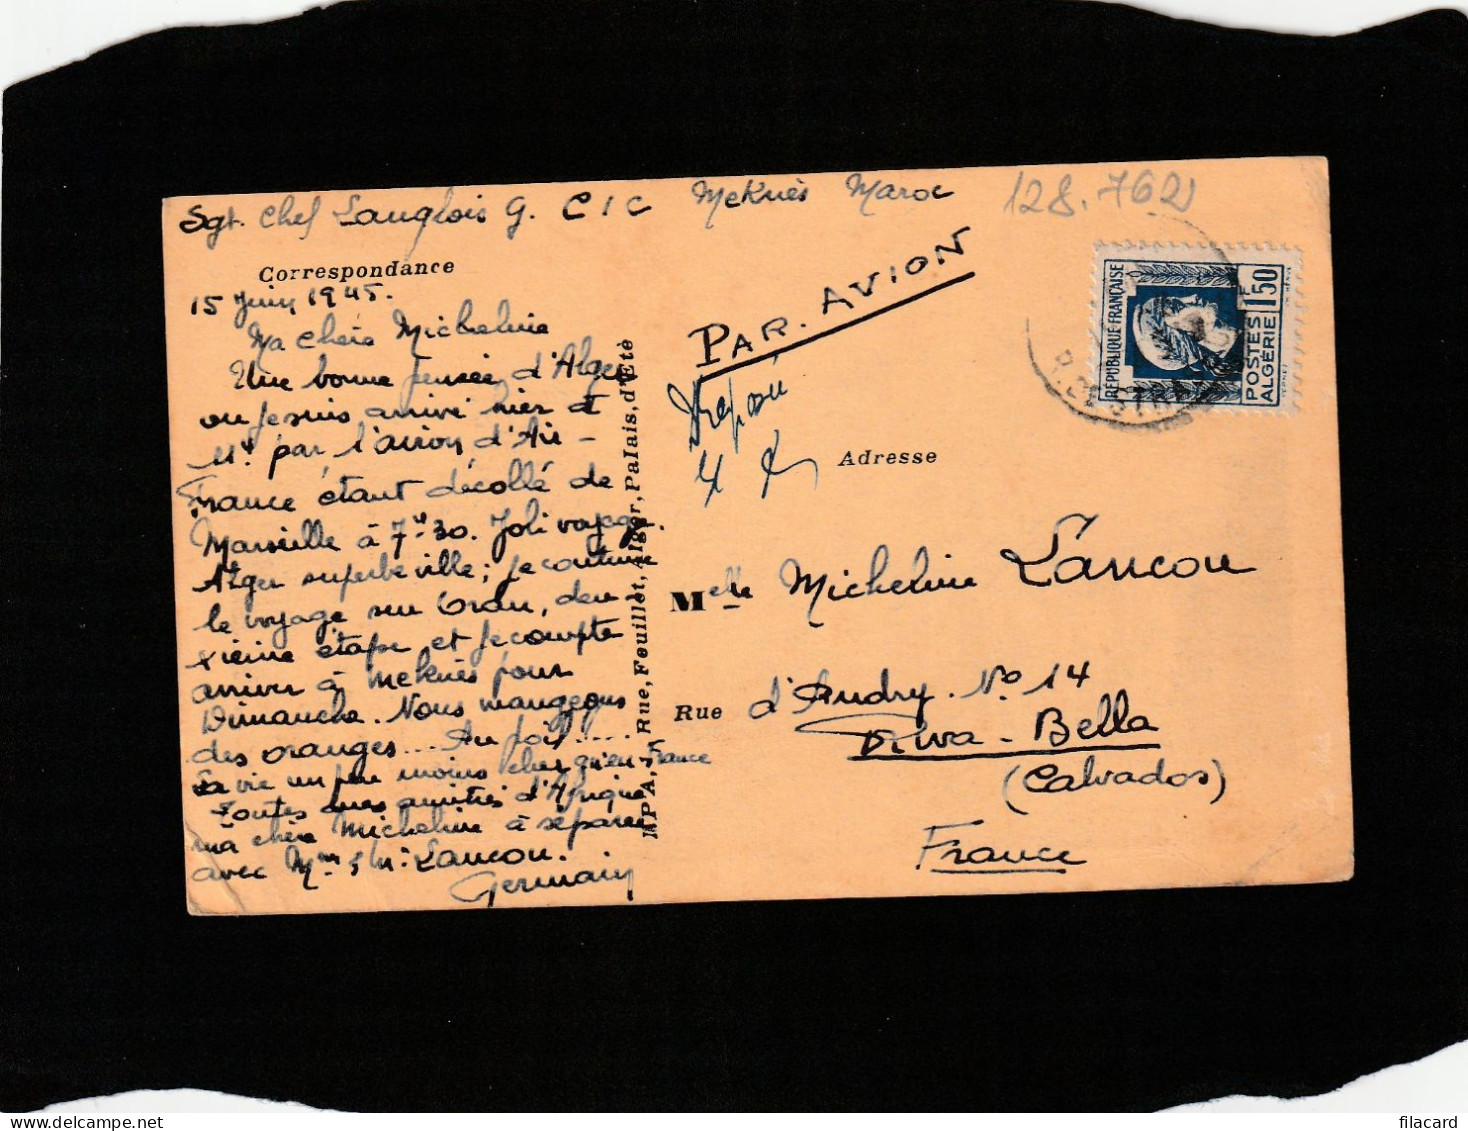 Sgt. Chef Langlois G. C I C Meknès Maroc
128.762
Correspondance
15 Juin 1945.
Ma chère Micheline
Une bonne pensée d'Alger
ou je suis arrivé hier à
11H par l'avion d'Air-
France étant décollé de
Marseille à 7H30. Joli voyage.
Alger superbe ville; je continue
le voyage sur Oran, deu-
xième étape et je compte
arriver à Meknès pour
Dimanche. Nous mangeons
des oranges.... Au poil.....
La vie un peu moins cher qu'en France
Toutes mes amitiés d'Afrique
ma chère Micheline à séparer
avec Mme & Mr Lancou.
Germain
EPA, Rue, Feuillet, Alger, Palais, d'Etè
PAR. AVION
REPUBLIQUE FRANÇAISE
1F50
POSTES
ALGÉRIE
Adresse
Melle Micheline Lancou
Rue d'Andry. No 14
Riva-Bella
(Calvados)
France
filacard.com